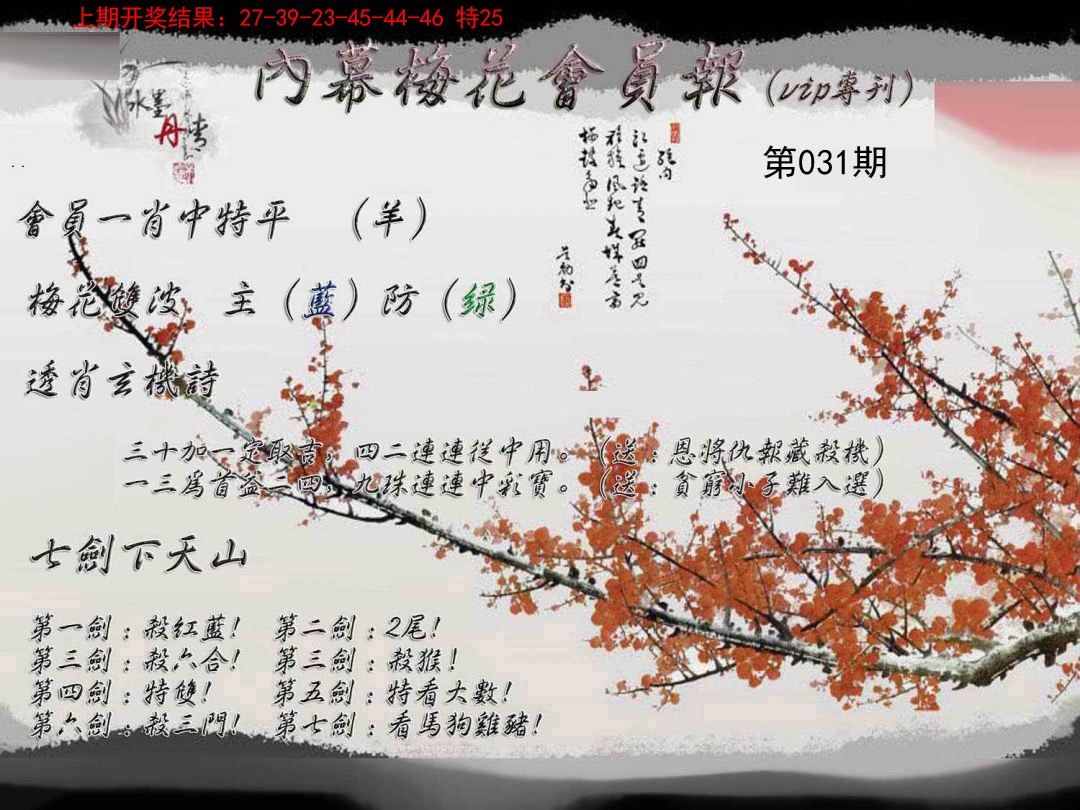 上期开奖结果：27-39-23-45-44-46 特25
內幕梅花會員報（vip專刊）
水墨
丹青
第031期
會員一肖中特平 （羊）
梅花雙波 主（藍）防（绿）
透肖玄機詩
三十加一定取吉，四二連連從中用。（送：恩將仇報藏殺機）
一三爲首益三四，九珠連連中彩寶。（送：貧窮小子難入選）
七劍下天山
第一劍：殺红藍！ 第二劍：2尾！
第三劍：殺六合！ 第三劍：殺猴！
第四劍：特雙！ 第五劍：特看大數！
第六劍：殺三門！ 第七劍：看馬狗雞豬！